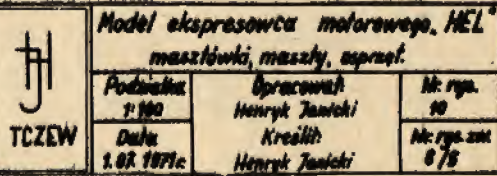 Model ekspresowca motorowego „HEL”
masztówki, maszty, osprzęt.
HJ
TCZEW
Podziałka
1:100
Opracował:
Henryk Janicki
Nr. rys.
10
Data
1.07.1971r.
Kreślił:
Henryk Janicki
Nr. rys. zm.
6/6